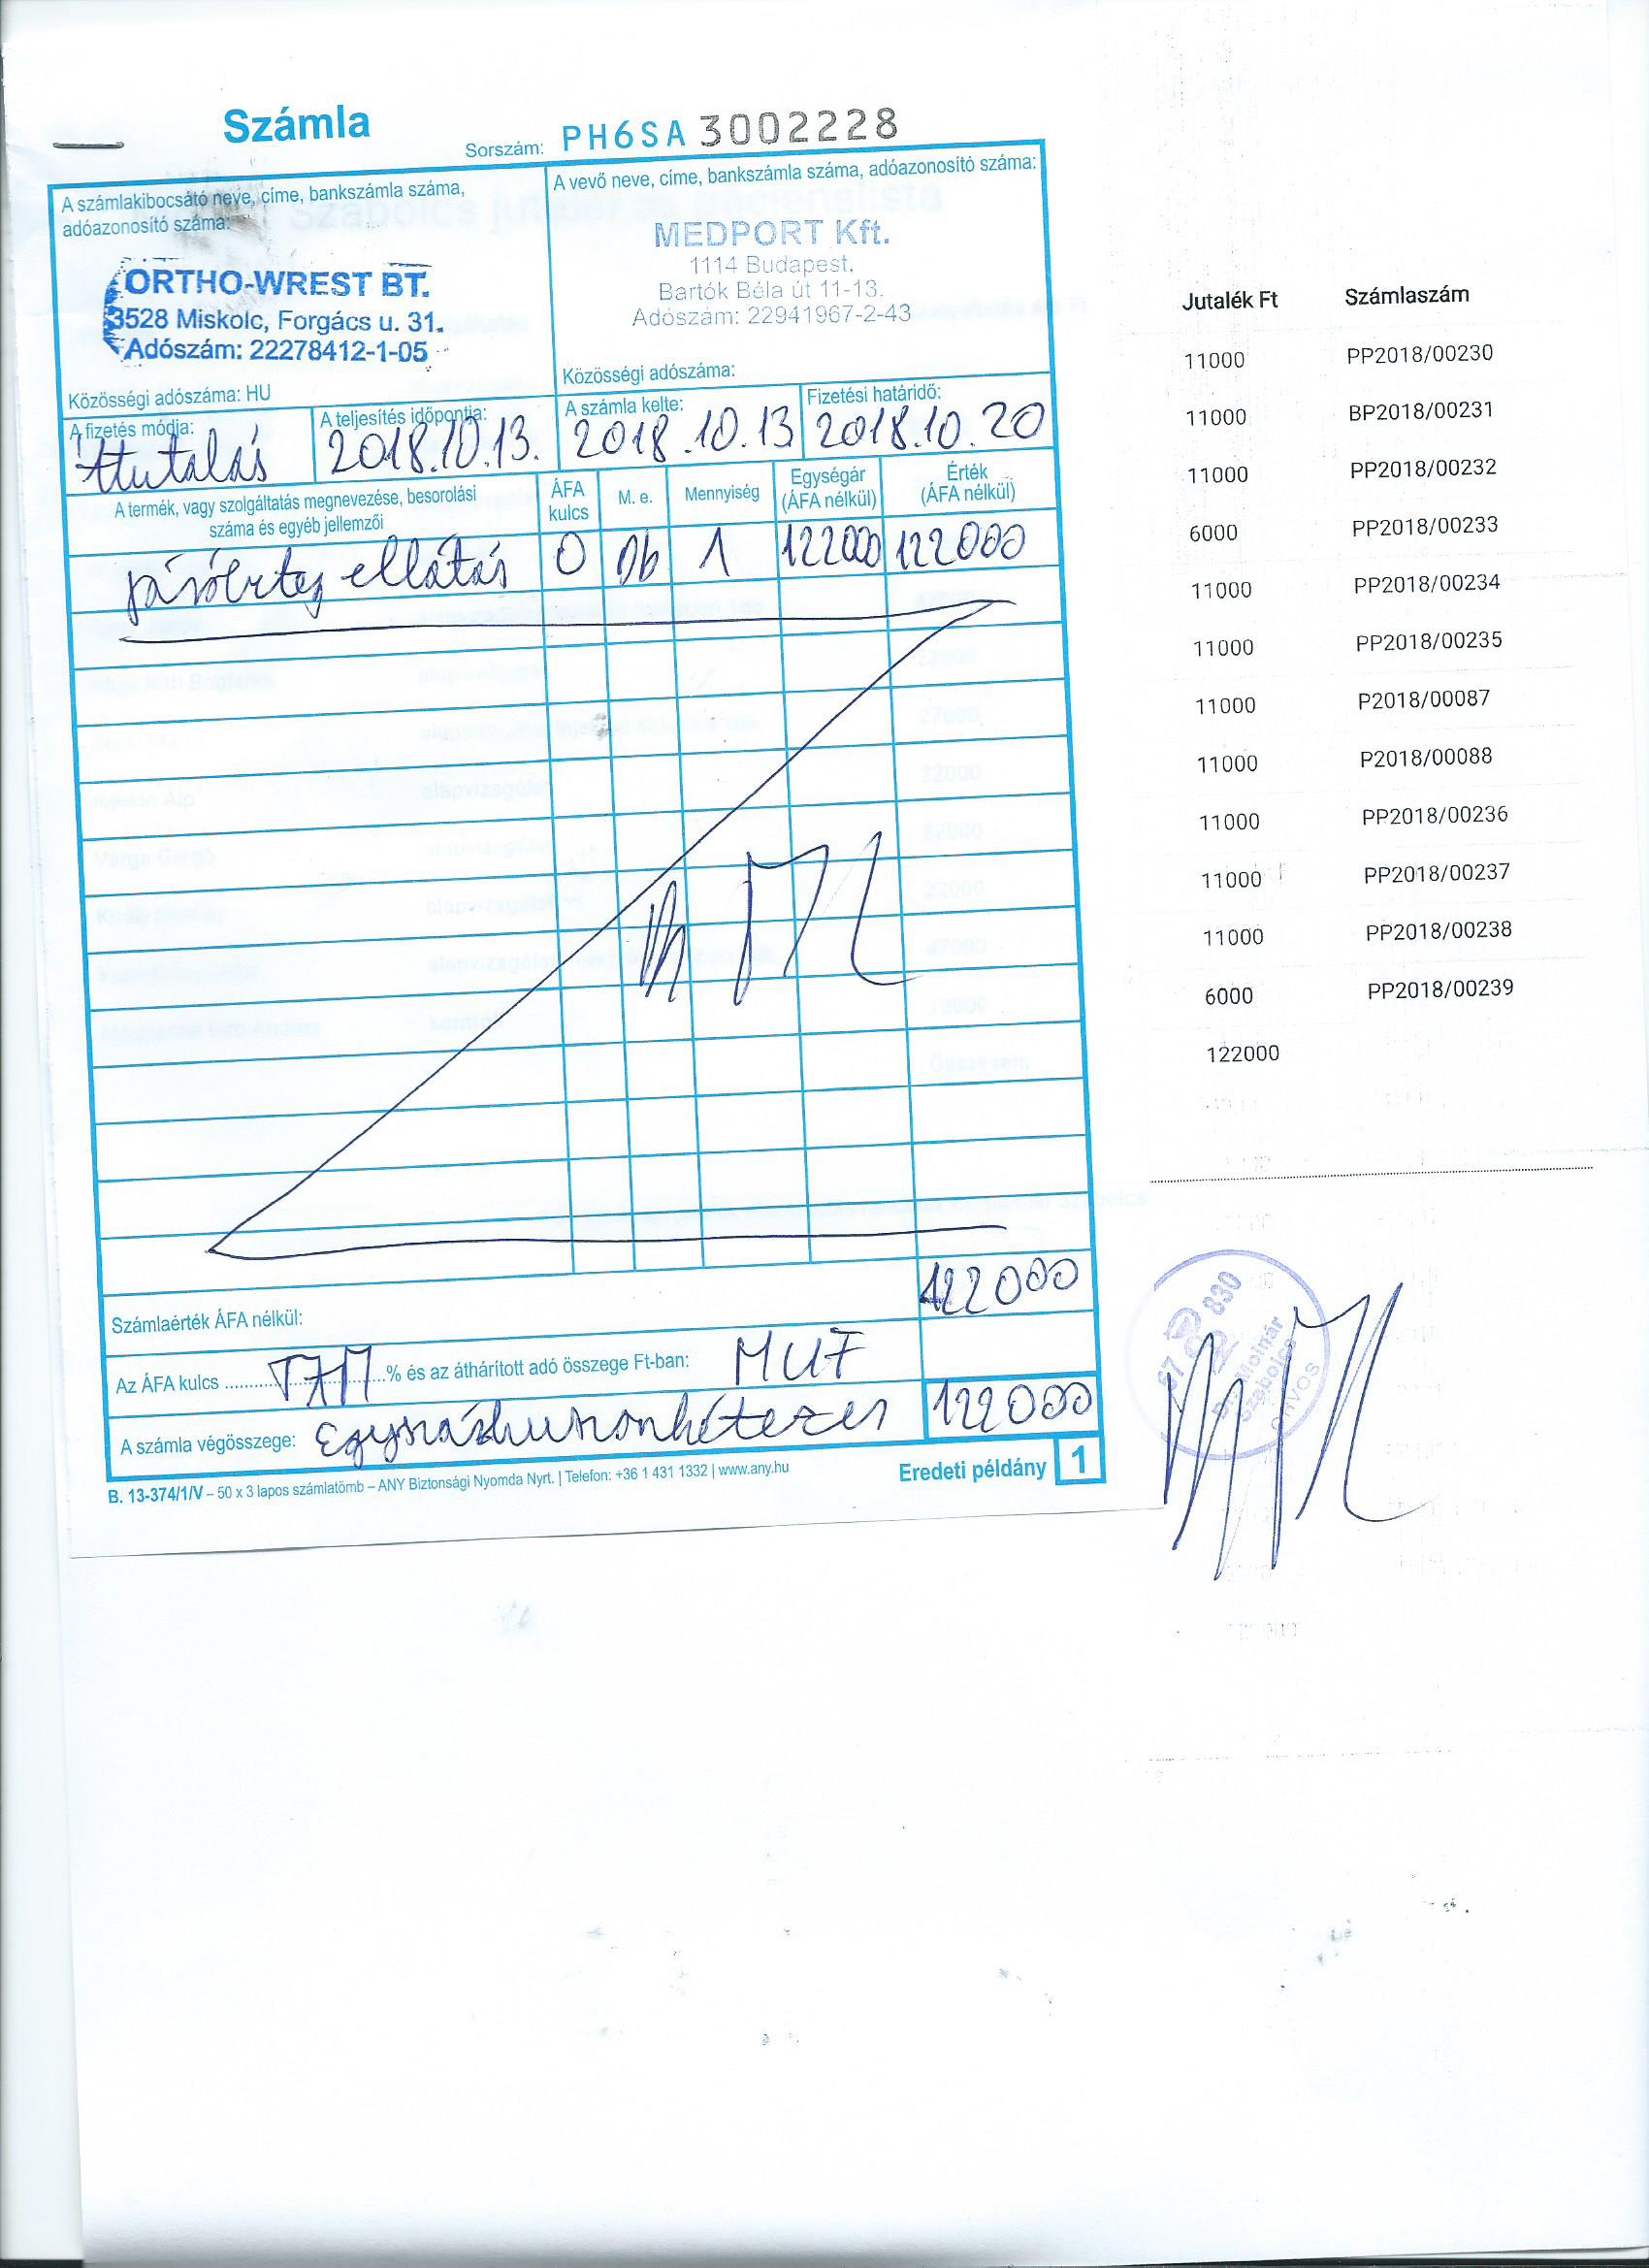 Számla
Sorszám: PH6SA 3002228
A számlakibocsátó neve, címe, bankszámla száma,
adóazonosító száma:
ORTHO-WREST BT.
3528 Miskolc, Forgács u. 31.
Adószám: 22278412-1-05
Közösségi adószáma: HU
A vevő neve, címe, bankszámla száma, adóazonosító száma:
MEDPORT Kft.
1114 Budapest,
Bartók Béla út 11-13.
Adószám: 22941967-2-43
Közösségi adószáma:
A fizetés módja:
Átutalás
A teljesítés időpontja:
2018.10.13.
A számla kelte:
2018.10.13
Fizetési határidő:
2018.10.20
A termék, vagy szolgáltatás megnevezése, besorolási
száma és egyéb jellemzői
ÁFA
kulcs
M. e.
Mennyiség
Egységár
(ÁFA nélkül)
Érték
(ÁFA nélkül)
járóbeteg ellátás 0 Db 1 122000 122000
Számlaérték ÁFA nélkül: 122000
Az ÁFA kulcs TAM % és az áthárított adó összege Ft-ban:
A számla végösszege: Egyszázhuszonkétezer 122000
B. 13-374/1/V – 50 x 3 lapos számlatömb – ANY Biztonsági Nyomda Nyrt. | Telefon: +36 1 431 1332 | www.any.hu
Eredeti példány 1
Jutalék Ft Számlaszám
11000 PP2018/00230
11000 BP2018/00231
11000 PP2018/00232
6000 PP2018/00233
11000 PP2018/00234
11000 PP2018/00235
11000 P2018/00087
11000 P2018/00088
11000 PP2018/00236
11000 PP2018/00237
11000 PP2018/00238
6000 PP2018/00239
122000
67 830
Dr. Molnár
Szabolcs
ORVOS